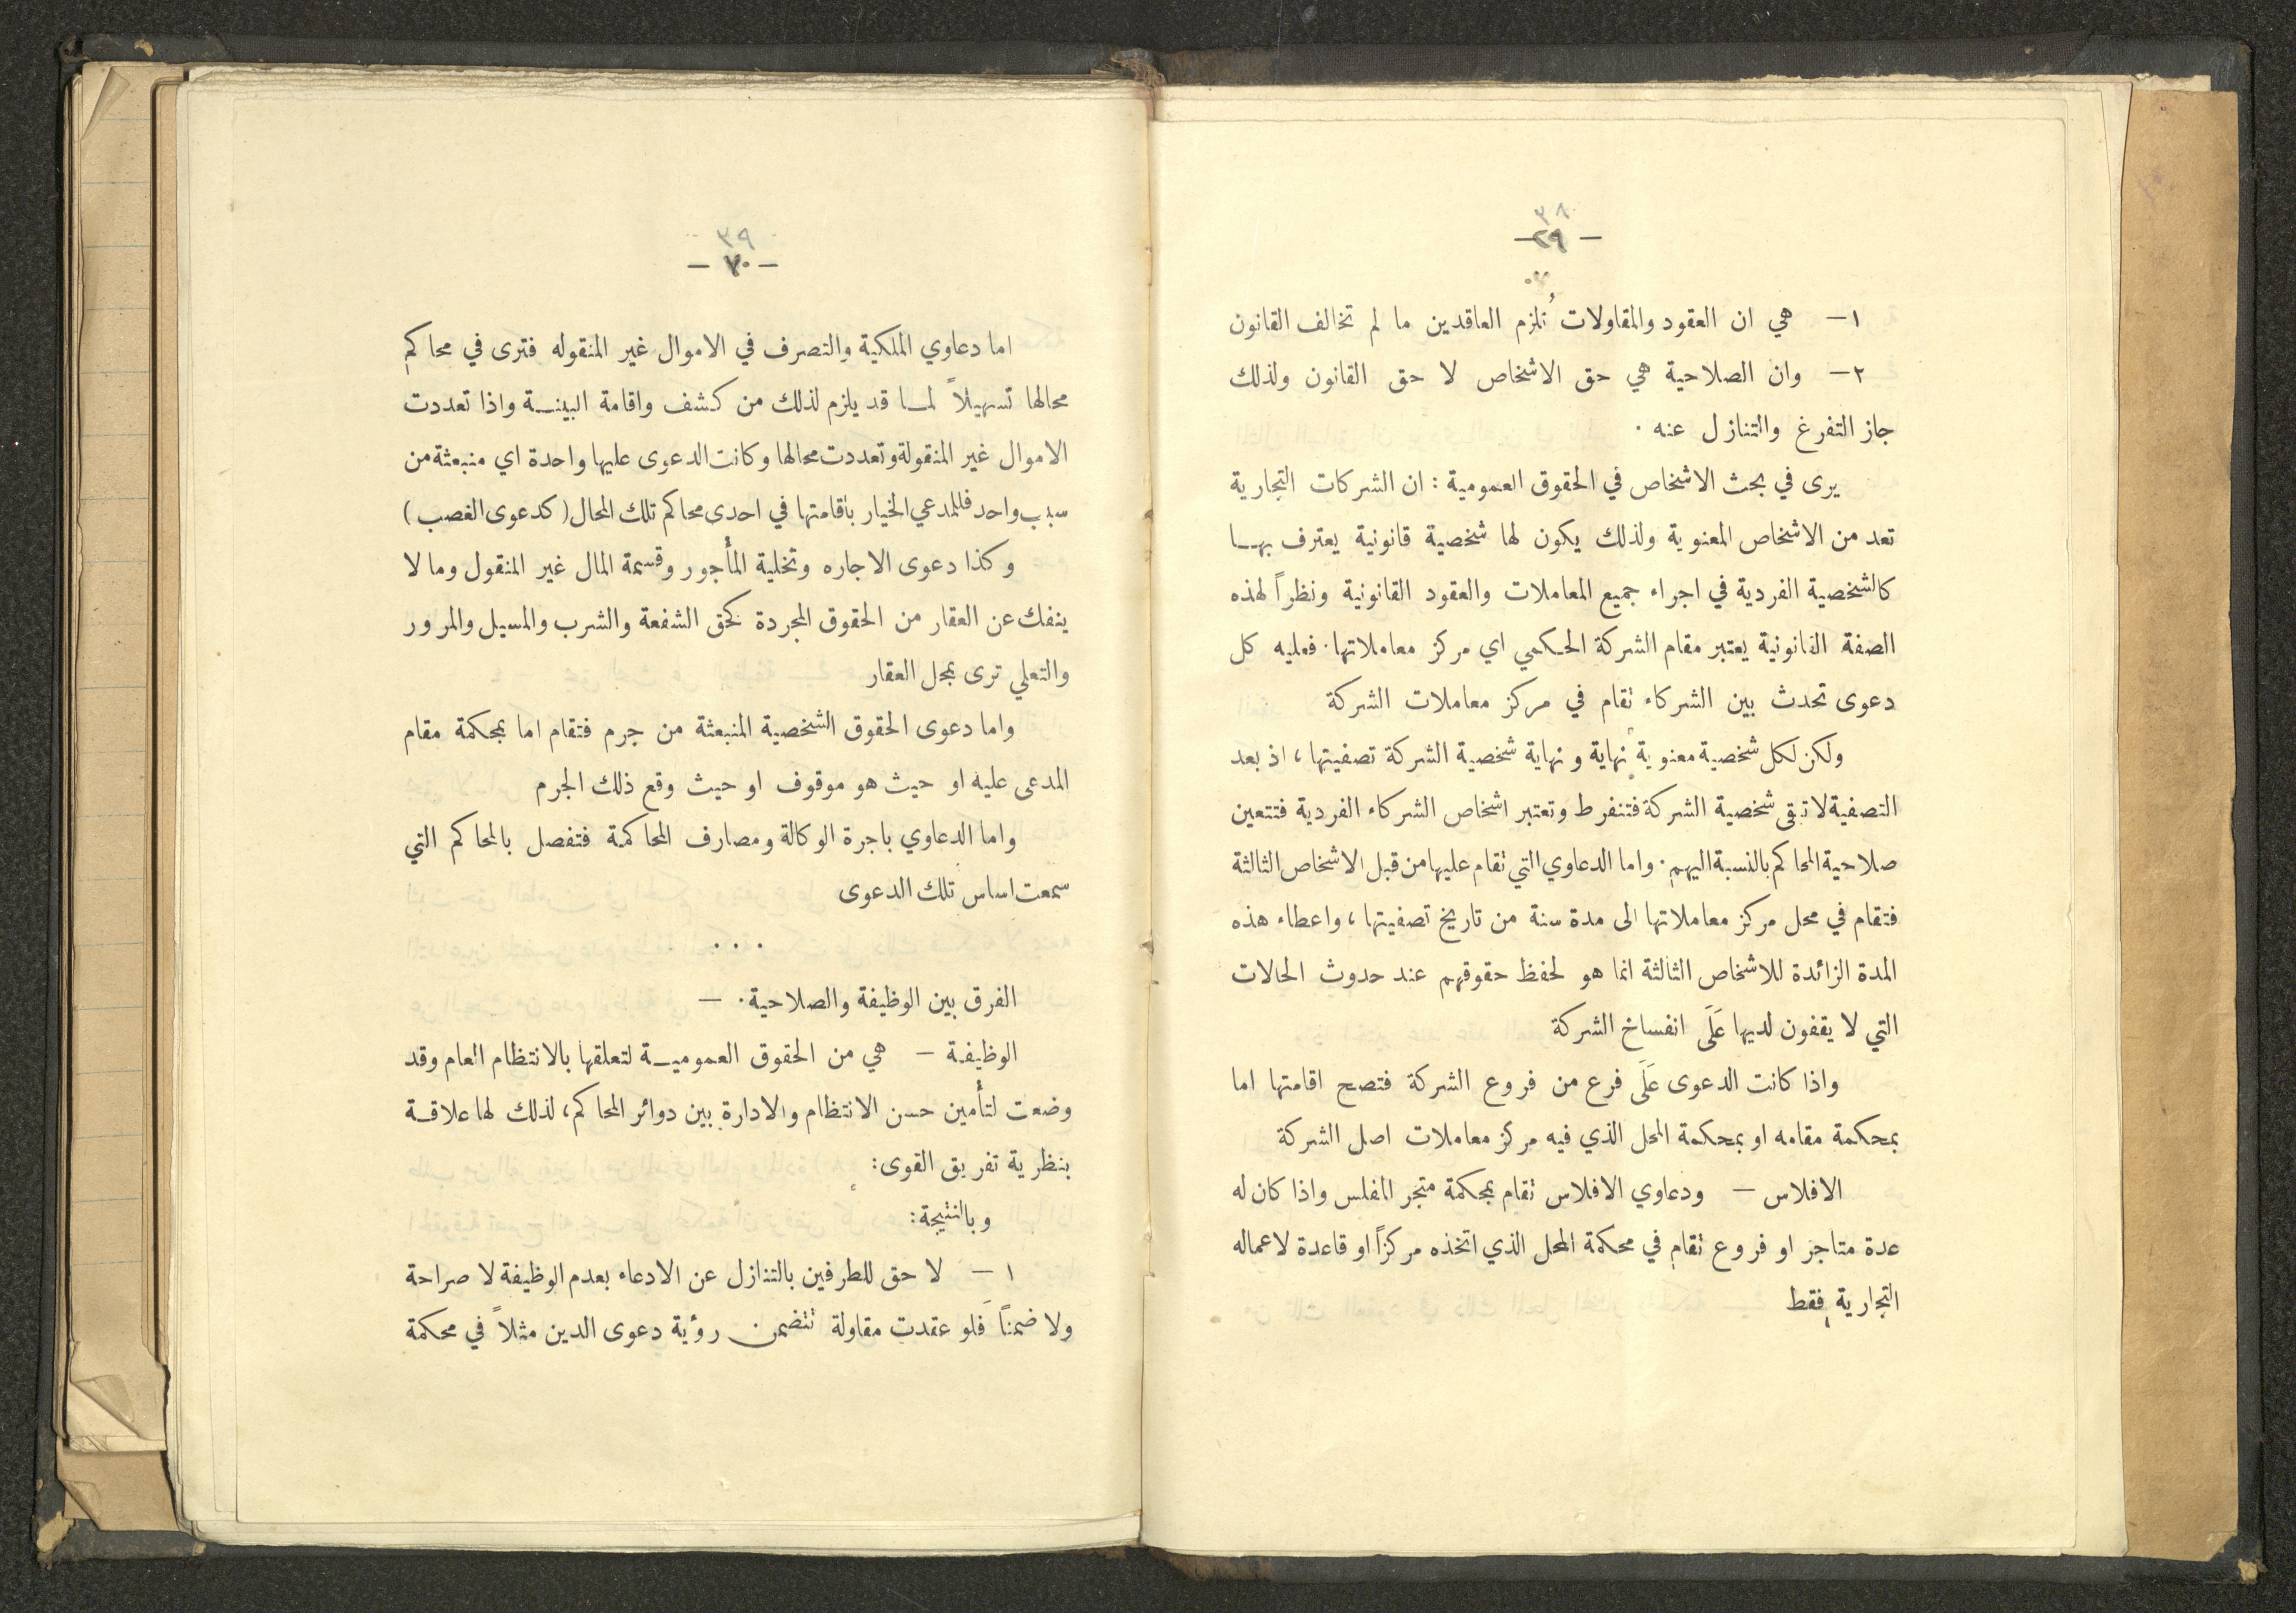 ٣٨
— ٢٩ —
١ — هي ان العقود والمقاولات تُلزم العاقدين ما لم تخالف القانون
٢ — وان الصلاحية هي حق الاشخاص لا حق القانون ولذلك
جاز التفرغ والتنازل عنه .
يرى في بحث الاشخاص في الحقوق العمومية : ان الشركات التجارية
تعد من الاشخاص المعنوية ولذلك يكون لها شخصية قانونية يعترف بهـا
كالشخصية الفردية في اجراء جميع المعاملات والعقود القانونية ونظراً لهذه
الصفة القانونية يعتبر مقام الشركة الحكمي اي مركز معاملاتها . فعليه كل
دعوى تحدث بين الشركاء تقام في مركز معاملات الشركة
ولكن لكل شخصية معنوية نهاية ونهاية شخصية الشركة تصفيتها ، اذ بعد
التصفية لا تبقى شخصية الشركة فتنفرط وتعتبر اشخاص الشركاء الفردية فتتعين
صلاحية المحاكم بالنسبة اليهم . واما الدعاوي التي تقام عليها من قبل الاشخاص الثالثة
فتقام في محل مركز معاملاتها الى مدة سنة من تاريخ تصفيتها ، واعطاء هذه
المدة الزائدة للاشخاص الثالثة انما هو لحفظ حقوقهم عند حدوث الحالات
التي لا يقفون لديها عَلَى انفساخ الشركة
واذا كانت الدعوى عَلَى فرع من فروع الشركة فتصح اقامتها اما
بمحكمة مقامه او بمحكمة المحل الذي فيه مركز معاملات اصل الشركة
الافلاس — ودعاوي الافلاس تقام بمحكمة متجر المفلس واذا كان له
عدة متاجر او فروع تقام في محكمة المحل الذي اتخذه مركزاً او قاعدة لاعماله
التجارية فقط
٣٩
— ٧٠ —
اما دعاوي الملكية والتصرف في الاموال غير المنقوله فترى في محاكم
محالها تسهيلاً لمـا قد يلزم لذلك من كشف واقامة البينـة واذا تعددت
الاموال غير المنقولة وتعددت محالها وكانت الدعوى عليها واحدة اي منبعثة من
سبب واحد فللمدعي الخيار باقامتها في احدى محاكم تلك المحال ( كدعوى الغصب )
وكذا دعوى الاجاره وتخلية المأجور وقسمة المال غير المنقول وما لا
ينفك عن العقار من الحقوق المجردة كحق الشفعة والشرب والمسيل والمرور
والتعلي ترى بمحل العقار
واما دعوى الحقوق الشخصية المنبعثة من جرم فتقام اما بمحكمة مقام
المدعى عليه او حيث هو موقوف او حيث وقع ذلك الجرم
واما الدعاوي باجرة الوكالة ومصارف المحاكمة فتفصل بالمحاكم التي
سمعت اساس تلك الدعوى
. . .
الفرق بين الوظيفة والصلاحية . —
الوظيفة — هي من الحقوق العموميـة لتعلقها بالانتظام العام وقد
وضعت لتأمين حسن الانتظام والادارة بين دوائر المحاكم ، لذلك لها علاقـة
بنظرية تفريق القوى :
وبالنتيجة :
١ — لا حق للطرفين بالتنازل عن الادعاء بعدم الوظيفة لا صراحة
ولا ضمناً فلو عقدت مقاولة تتضمن رؤية دعوى الدين مثلاً في محكمة